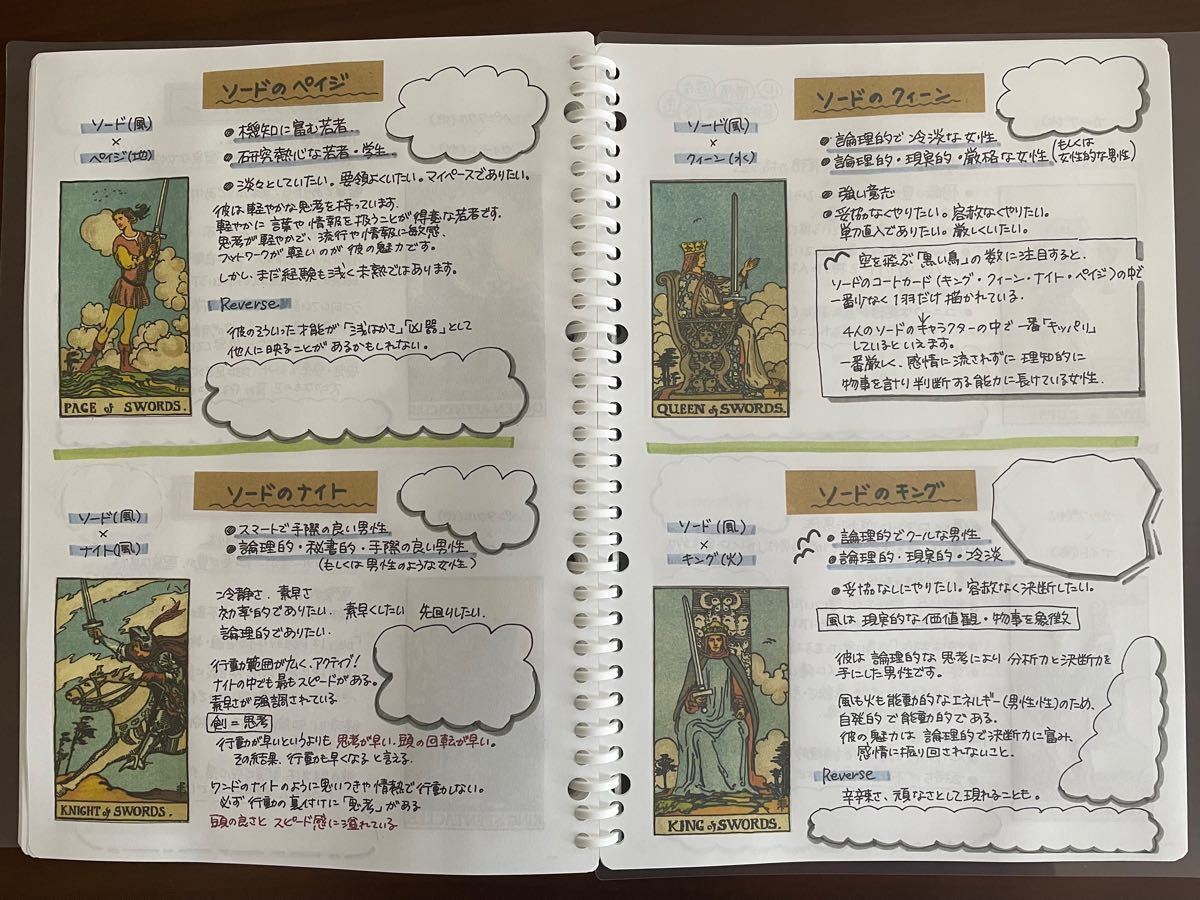 ソードの ペイジ
ソード(風)
×
ペイジ(地)
● 機知に富む若者
● 研究熱心な若者・学生
● 淡々としていたい。要領よくいたい。マイペースでありたい。
彼は軽やかな思考を持っています。
軽やかに言葉や情報を扱うことが得意な若者です。
思考が軽やかで、流行や情報に敏感、
フットワークが軽いのが彼の魅力です。
しかし、まだ経験も浅く未熟ではあります。
Reverse
彼のそういった才能が「浅はかさ」「凶器」として
他人に映ることがあるかもしれない。
PAGE of SWORDS.
ソードのナイト
ソード(風)
×
ナイト(風)
● スマートで手際の良い男性
● 論理的・秘書的・手際の良い男性
(もしくは男性のような女性)
冷静さ、素早さ
効率的でありたい。素早くしたい 先回りしたい.
論理的でありたい.
行動範囲が広く、アクティブ!
ナイトの中でも最もスピードがある。
素早さが強調されている
剣=思考
行動が早いというよりも 思考が早い.頭の回転が早い。
その結果、行動も早くなると言える.
ワンドのナイトのように思いつきや情熱で行動しない。
必ず行動の裏付けに「思考」がある
頭の良さと スピード感に溢れている
KNIGHT of SWORDS.
ソードの クィーン
ソード(風)
×
クィーン(水)
● 論理的で冷淡な女性
● 論理的・現実的・厳格な女性(もしくは女性的な男性)
● 強い意志
● 妥協なくやりたい。容赦なくやりたい。
単刀直入でありたい。厳しくいたい。
空を飛ぶ「黒い鳥」の数に注目すると、
ソードのコートカード(キング・クィーン・ナイト・ペイジ)の中で
一番少なく1羽だけ描かれている.
↓
4人のソードのキャラクターの中で一番「キッパリ」
しているといえます。
一番厳しく、感情に流されずに理知的に
物事を計り判断する能力に長けている女性.
QUEEN of SWORDS.
ソードの キング
ソード(風)
×
キング(火)
● 論理的でクールな男性
● 論理的・現実的・冷淡
● 妥協なしにやりたい。容赦なく決断したい。
風は現実的な価値観・物事を象徴
彼は論理的な思考により分析力と決断力を
手にした男性です。
風も火も能動的なエネルギー(男性性)のため、
自発的で能動的である。
彼の魅力は論理的で決断力に富み、
感情に振り回されないこと.
Reverse
辛辣さ、頑なさとして現れることも。
KING of SWORDS.